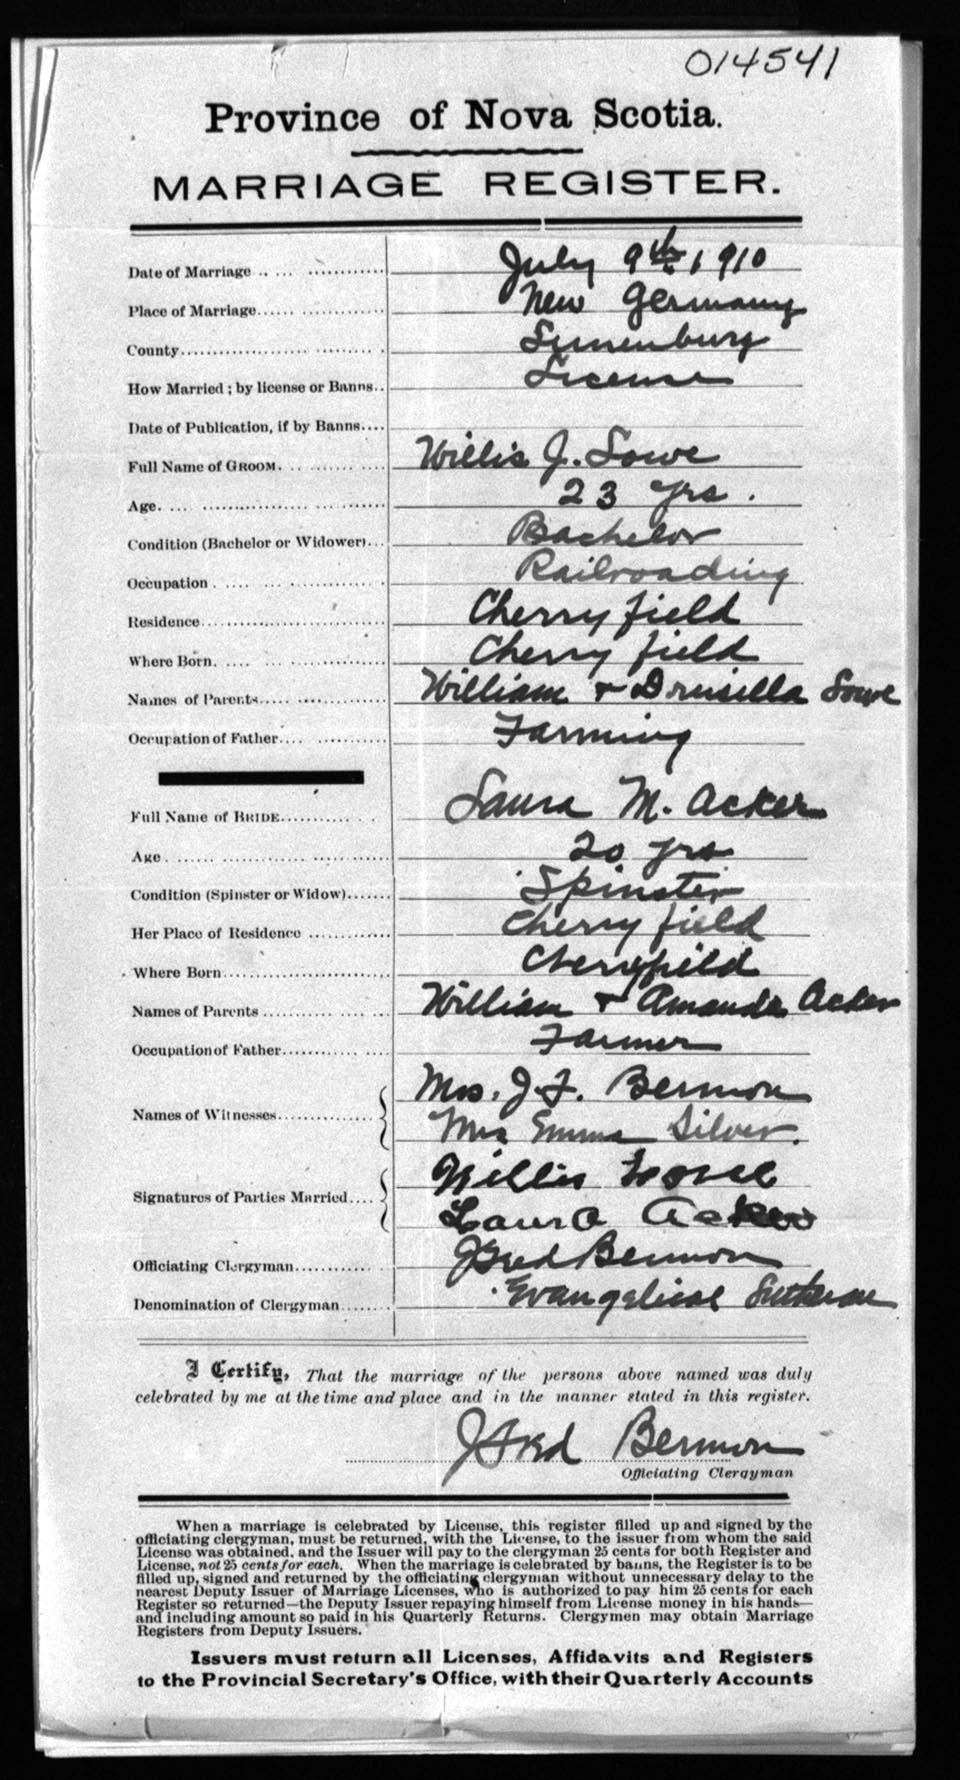 014541
Province of Nova Scotia.
MARRIAGE REGISTER.
Date of Marriage July 9th, 1910
Place of Marriage New Germany
County Lunenburg
How Married ; by license or Banns License
Date of Publication, if by Banns
Full Name of GROOM Willis J. Lowe
Age 23 yrs.
Condition (Bachelor or Widower) Bachelor
Occupation Railroading
Residence Cherryfield
Where Born Cherry field
Names of Parents William & Drusilla Lowe
Occupation of Father Farming
Full Name of BRIDE Laura M. Acker
Age 20 yrs
Condition (Spinster or Widow) Spinster
Her Place of Residence Cherry field
Where Born Cherryfield
Names of Parents William & Amanda Acker
Occupation of Father Farmer
Names of Witnesses Mrs. J. F. Bermon
Mrs Emma Silver.
Signatures of Parties Married Willis Lowe
Laura Acker
Officiating Clergyman J Fred Bermon
Denomination of Clergyman Evangelical Lutheran
I Certify, That the marriage of the persons above named was duly
celebrated by me at the time and place and in the manner stated in this register.
J Fred Bermon
Officiating Clergyman
When a marriage is celebrated by License, this register filled up and signed by the
officiating clergyman, must be returned, with the License, to the issuer from whom the said
License was obtained, and the Issuer will pay to the clergyman 25 cents for both Register and
License, not 25 cents for each. When the marriage is celebrated by banns, the Register is to be
filled up, signed and returned by the officiating clergyman without unnecessary delay to the
nearest Deputy Issuer of Marriage Licenses, who is authorized to pay him 25 cents for each
Register so returned—the Deputy Issuer repaying himself from License money in his hands—
and including amount so paid in his Quarterly Returns. Clergymen may obtain Marriage
Registers from Deputy Issuers.
Issuers must return all Licenses, Affidavits and Registers
to the Provincial Secretary's Office, with their Quarterly Accounts